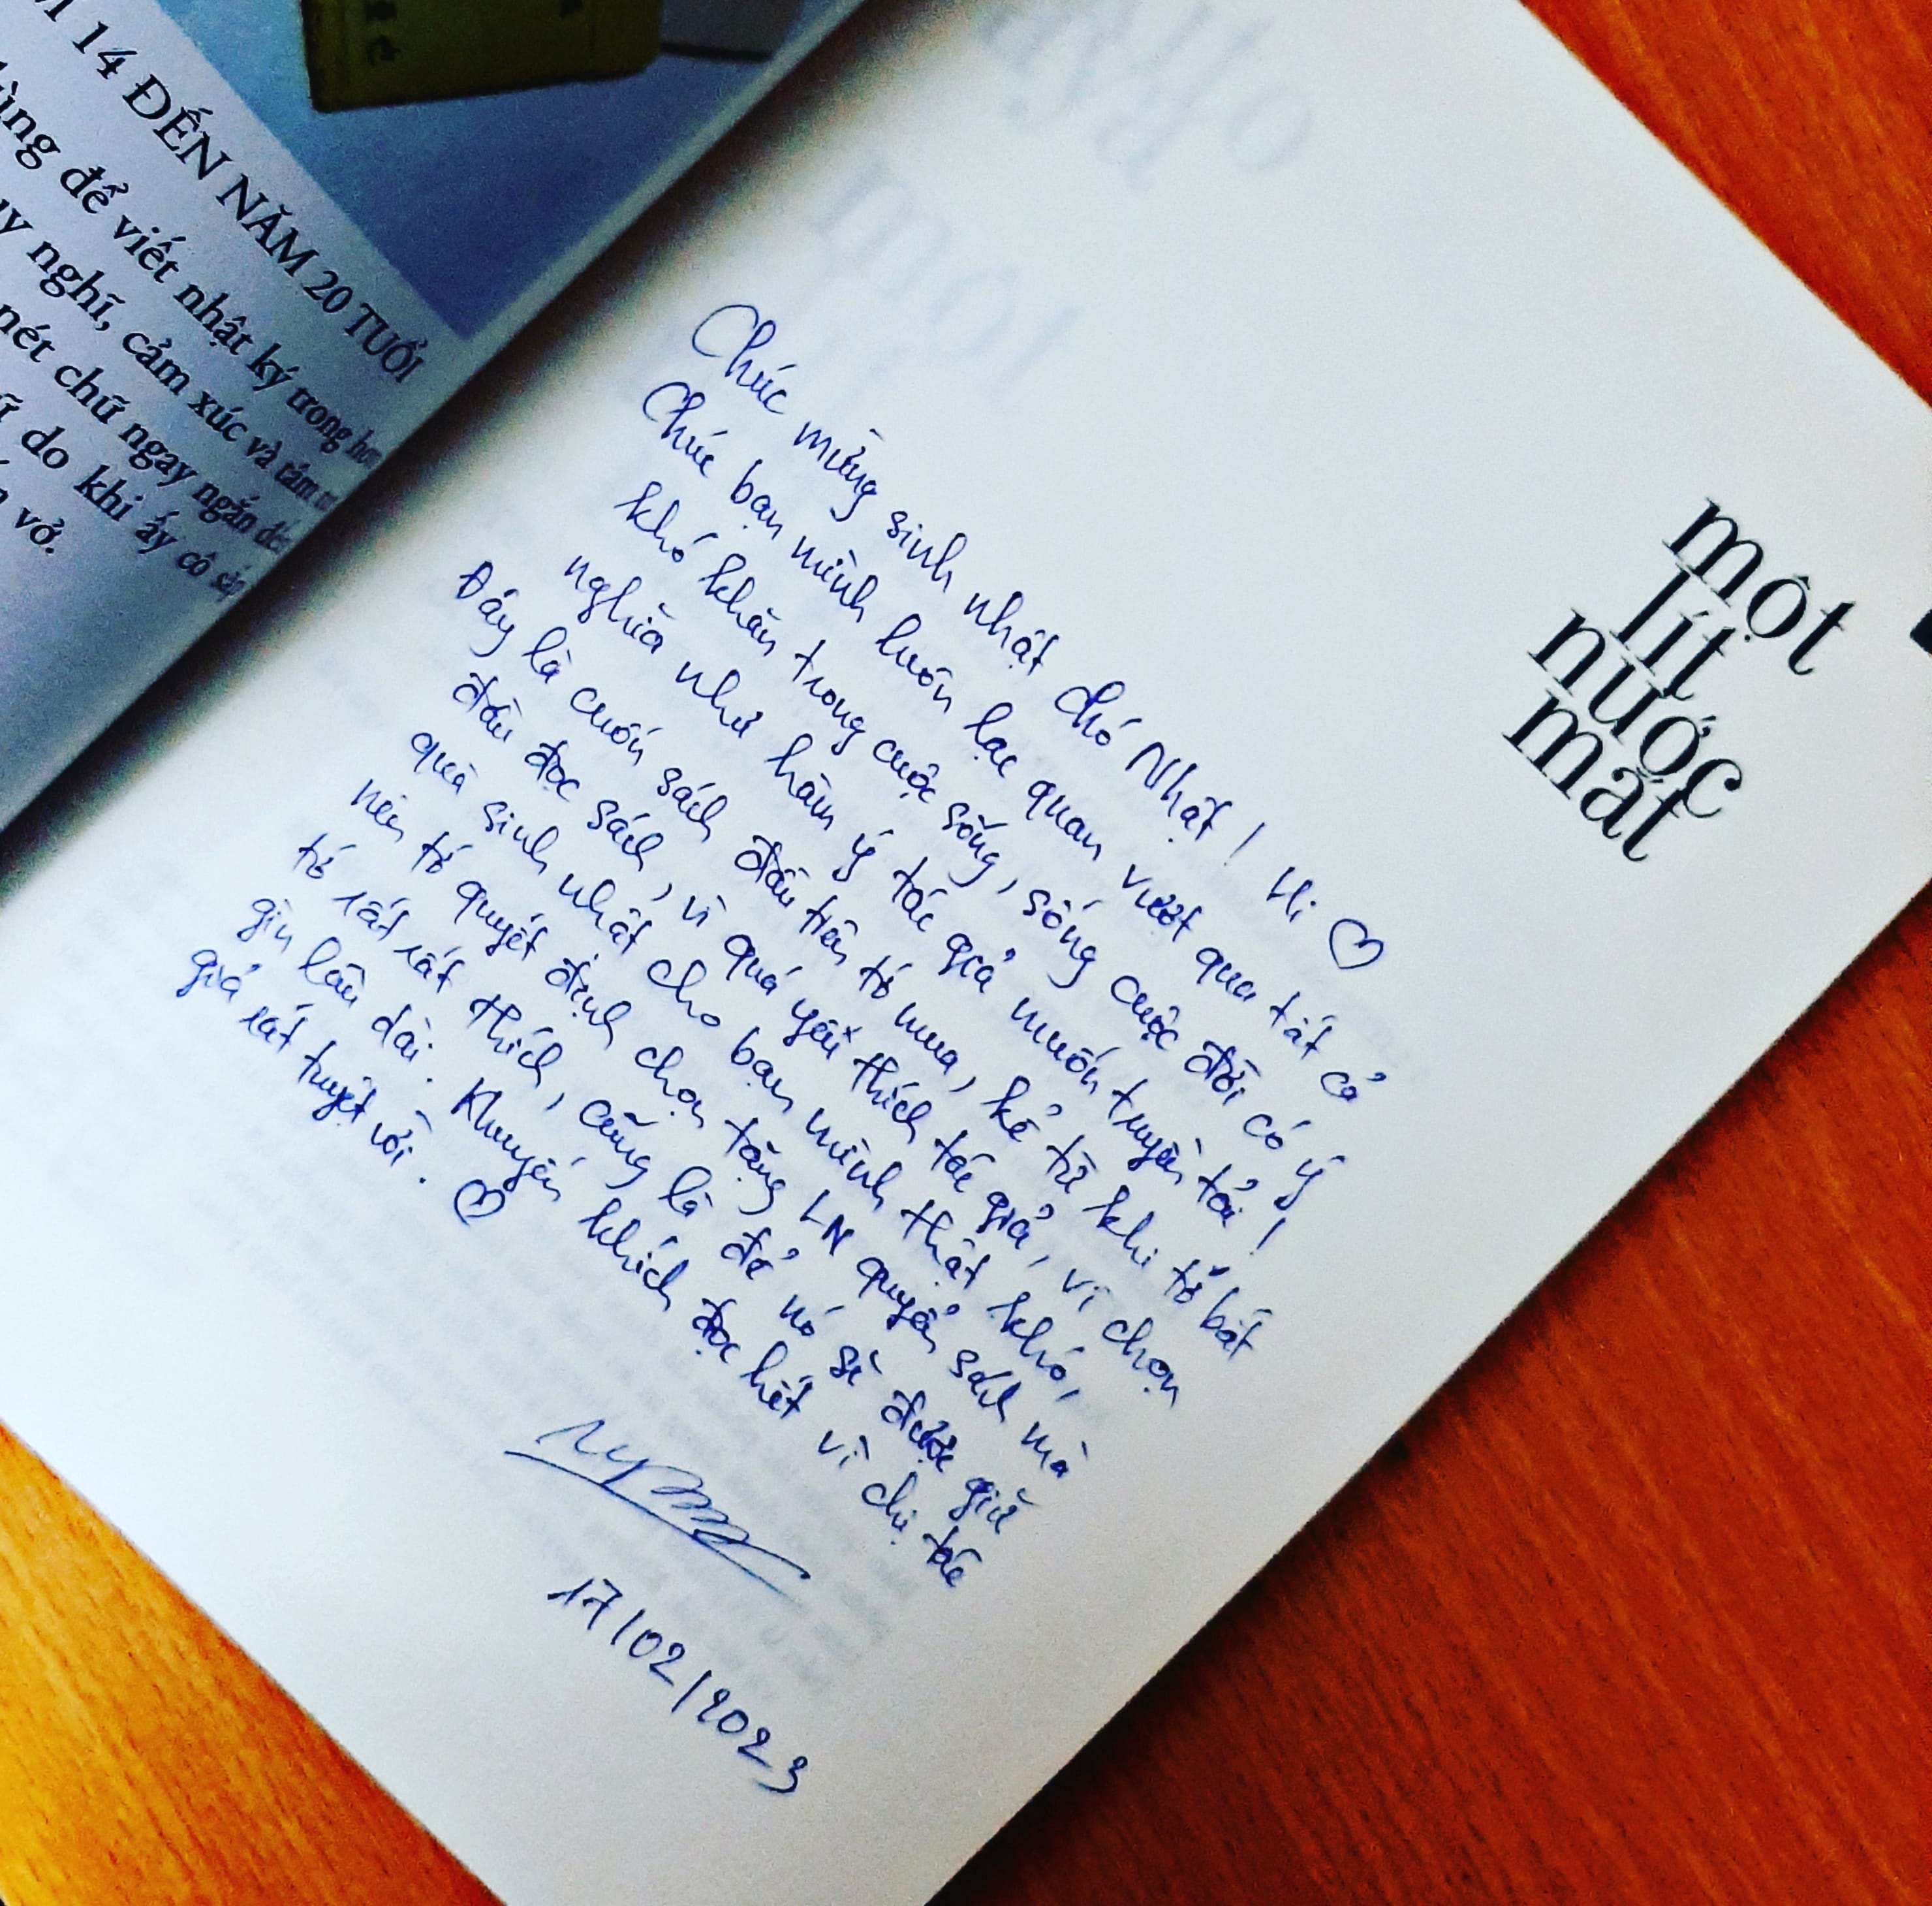 14 ĐẾN NĂM 20 TUỔI
để viết nhật ký trong
nghĩ, cảm xúc và tâm
nét chữ ngay ngắn
do khi ấy cô
vở.
một
lít
nước
mắt
Chúc mừng sinh nhật chó Nhật! Hi ♡
Chúc bạn mình luôn lạc quan vượt qua tất cả
khó khăn trong cuộc sống, sống cuộc đời có ý
nghĩa như hàm ý tác giả muốn truyền tải!
Đây là cuốn sách đầu tiên tớ mua, kể từ khi tớ bắt
đầu đọc sách, vì quá yêu thích tác giả, vì chọn
quà sinh nhật cho bạn mình thật khó,
nên tớ quyết định chọn tặng LN quyển sách mà
tớ rất rất thích, cũng là để nó sẽ được giữ
gìn lâu dài. Khuyến khích đọc hết vì chị tác
giả rất tuyệt vời. ♡
17/02/2023